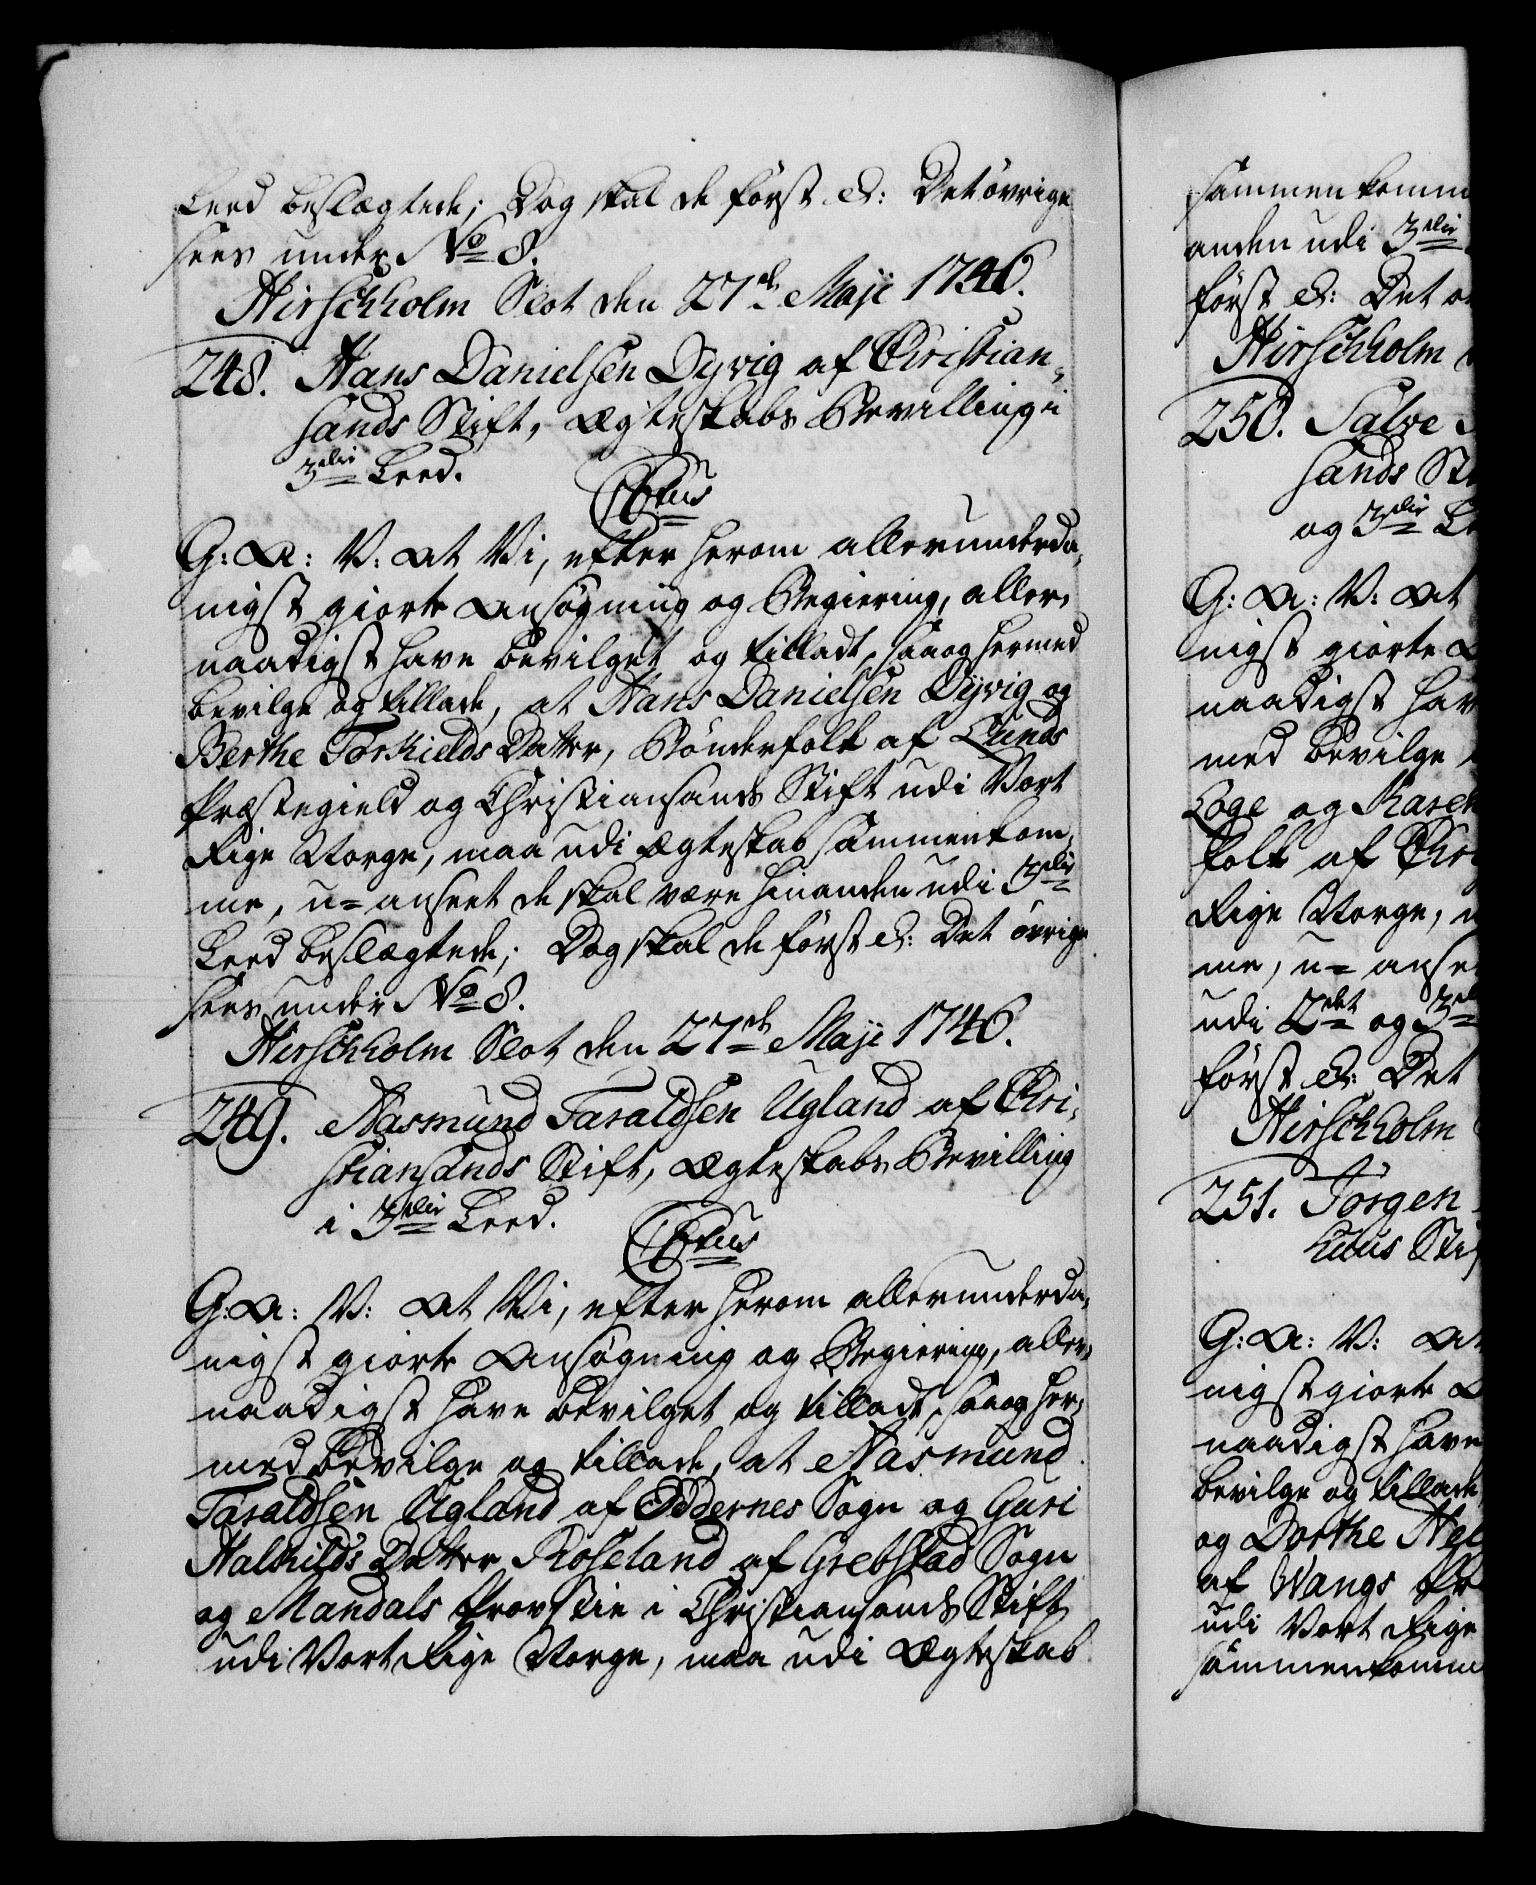 Leed beslægtede; Dog skal de först &: Det övrige
sees under No 8.
Hirschholm Slot den 27de Maji 1746.
248. Hans Danielsen Dyvig af Christian-
sands Stift, Ægteskabs Bevilling i
3die Leed.
C6tus
G: A: V: At Vi, efter herom allerunderda-
nigst giorte Ansøgning og Begiering, aller-
naadigst have bevilget og tilladt, saa og hermed
bevilge og tillade, at Hans Danielsen Dyvig og
Berthe Torkields Datter, Bönderfolk af Lunds
Præstegield og Christiansands Stift udi Vort
Rige Norge, maa udi Ægteskab sammenkom-
me, u-anseet de skal være hinanden udi 3die
Leed beslægtede; Dog skal de först &: Det övrige
sees under No 8.
Hirschholm Slot den 27de Maji 1746.
249. Aasmund Taraldsen Ugland af Chri-
stiansands Stift, Ægteskabs Bevilling
i 3die Leed.
C6tus
G: A: V: At Vi, efter herom allerunderda-
nigst giorte Ansøgning og Begiering, aller-
naadigst have bevilget og tilladt, saa og her-
med bevilge og tillade, at Aasmund
Taraldsen Ugland af Oddernes Sogn og Guri
Halkilds Datter Roseland af Grebstad Sogn
og Mandals Provstie i Christiansands Stift
udi Vort Rige Norge, maa udi Ægteskab
sammenkomm
anden udi 3die
först &: Det
Hirschholm
250. Salve
sands St
og 3die Le
G: A: V: At
nigst giorte A
naadigst hav
med bevilge
Loge og Karen
folk af Chri
Rige Norge,
me, u-ansee
udi 2det og 3di
först &: Det
Hirschholm
251. Jörgen
huus Stif
G: A: V: At
nigst giorte A
naadigst have
bevilge og tillade
og Dorthe Nel
af Wangs Pr
udi Vort Rige
sammenkomm